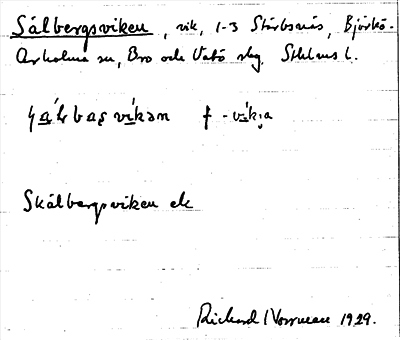 Sälbergsviken, vik, 1-3 Störbsnäs, Björkö-
Arholma sn, Bro och Vätö skg. Sthlms l.
vikən f -vikja
Skälbergsviken ek
Richard Norrman 1929.